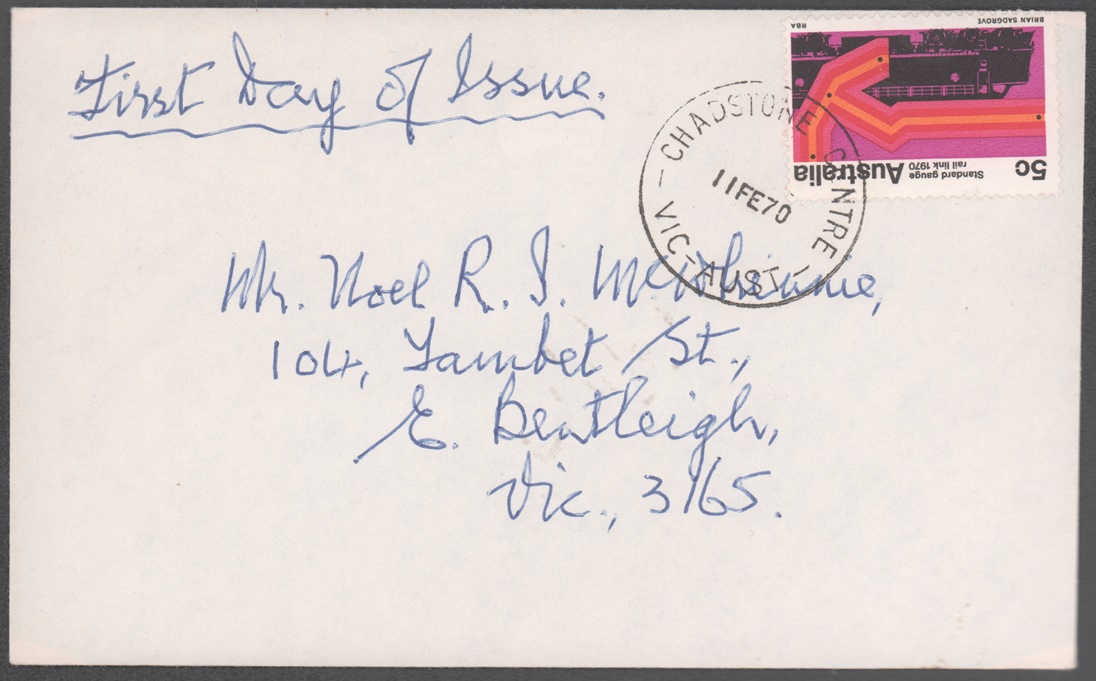 First Day of Issue.
RBA
BRIAN SADGROVE
5c
Standard gauge
rail link 1970
Australia
CHADSTONE CENTRE
11FE70
VIC-AUST
Mr. Noel R. I. McWhinnie,
104, Tambet St.,
E. Bentleigh,
Vic., 3165.